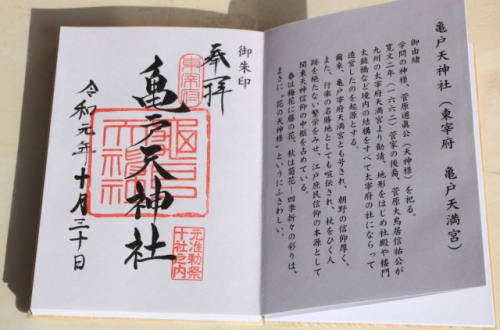 亀戸天神社(東宰府 亀戸天満宮)
御由緒
学問の神様、菅原道眞公(天神様)を祀る。
寛文二年(一六六二)菅家の後裔、菅原大鳥居信祐公が
九州の太宰府天満宮より勧請、地形をはじめ社殿や楼門
太鼓橋など境内の結構をすべて太宰府の社にならって
造営したのを起源とする。
爾来、亀戸宰府天満宮とも号され、朝野の信仰厚く、
また、行楽の名勝地としても喧伝され、杖をひく人
跡を絶たない繁栄をみせ、江戸庶民信仰の本源として
関東天神信仰の中枢を占めている。
春は梅花に藤の花、秋は菊花―四季折々の彩りは、
まさに〝花の天神様〟というにふさわしい。
御朱印
奉拝
東宰府
亀戸天神社
元准勅祭
十社之内
令和元年十月三十日